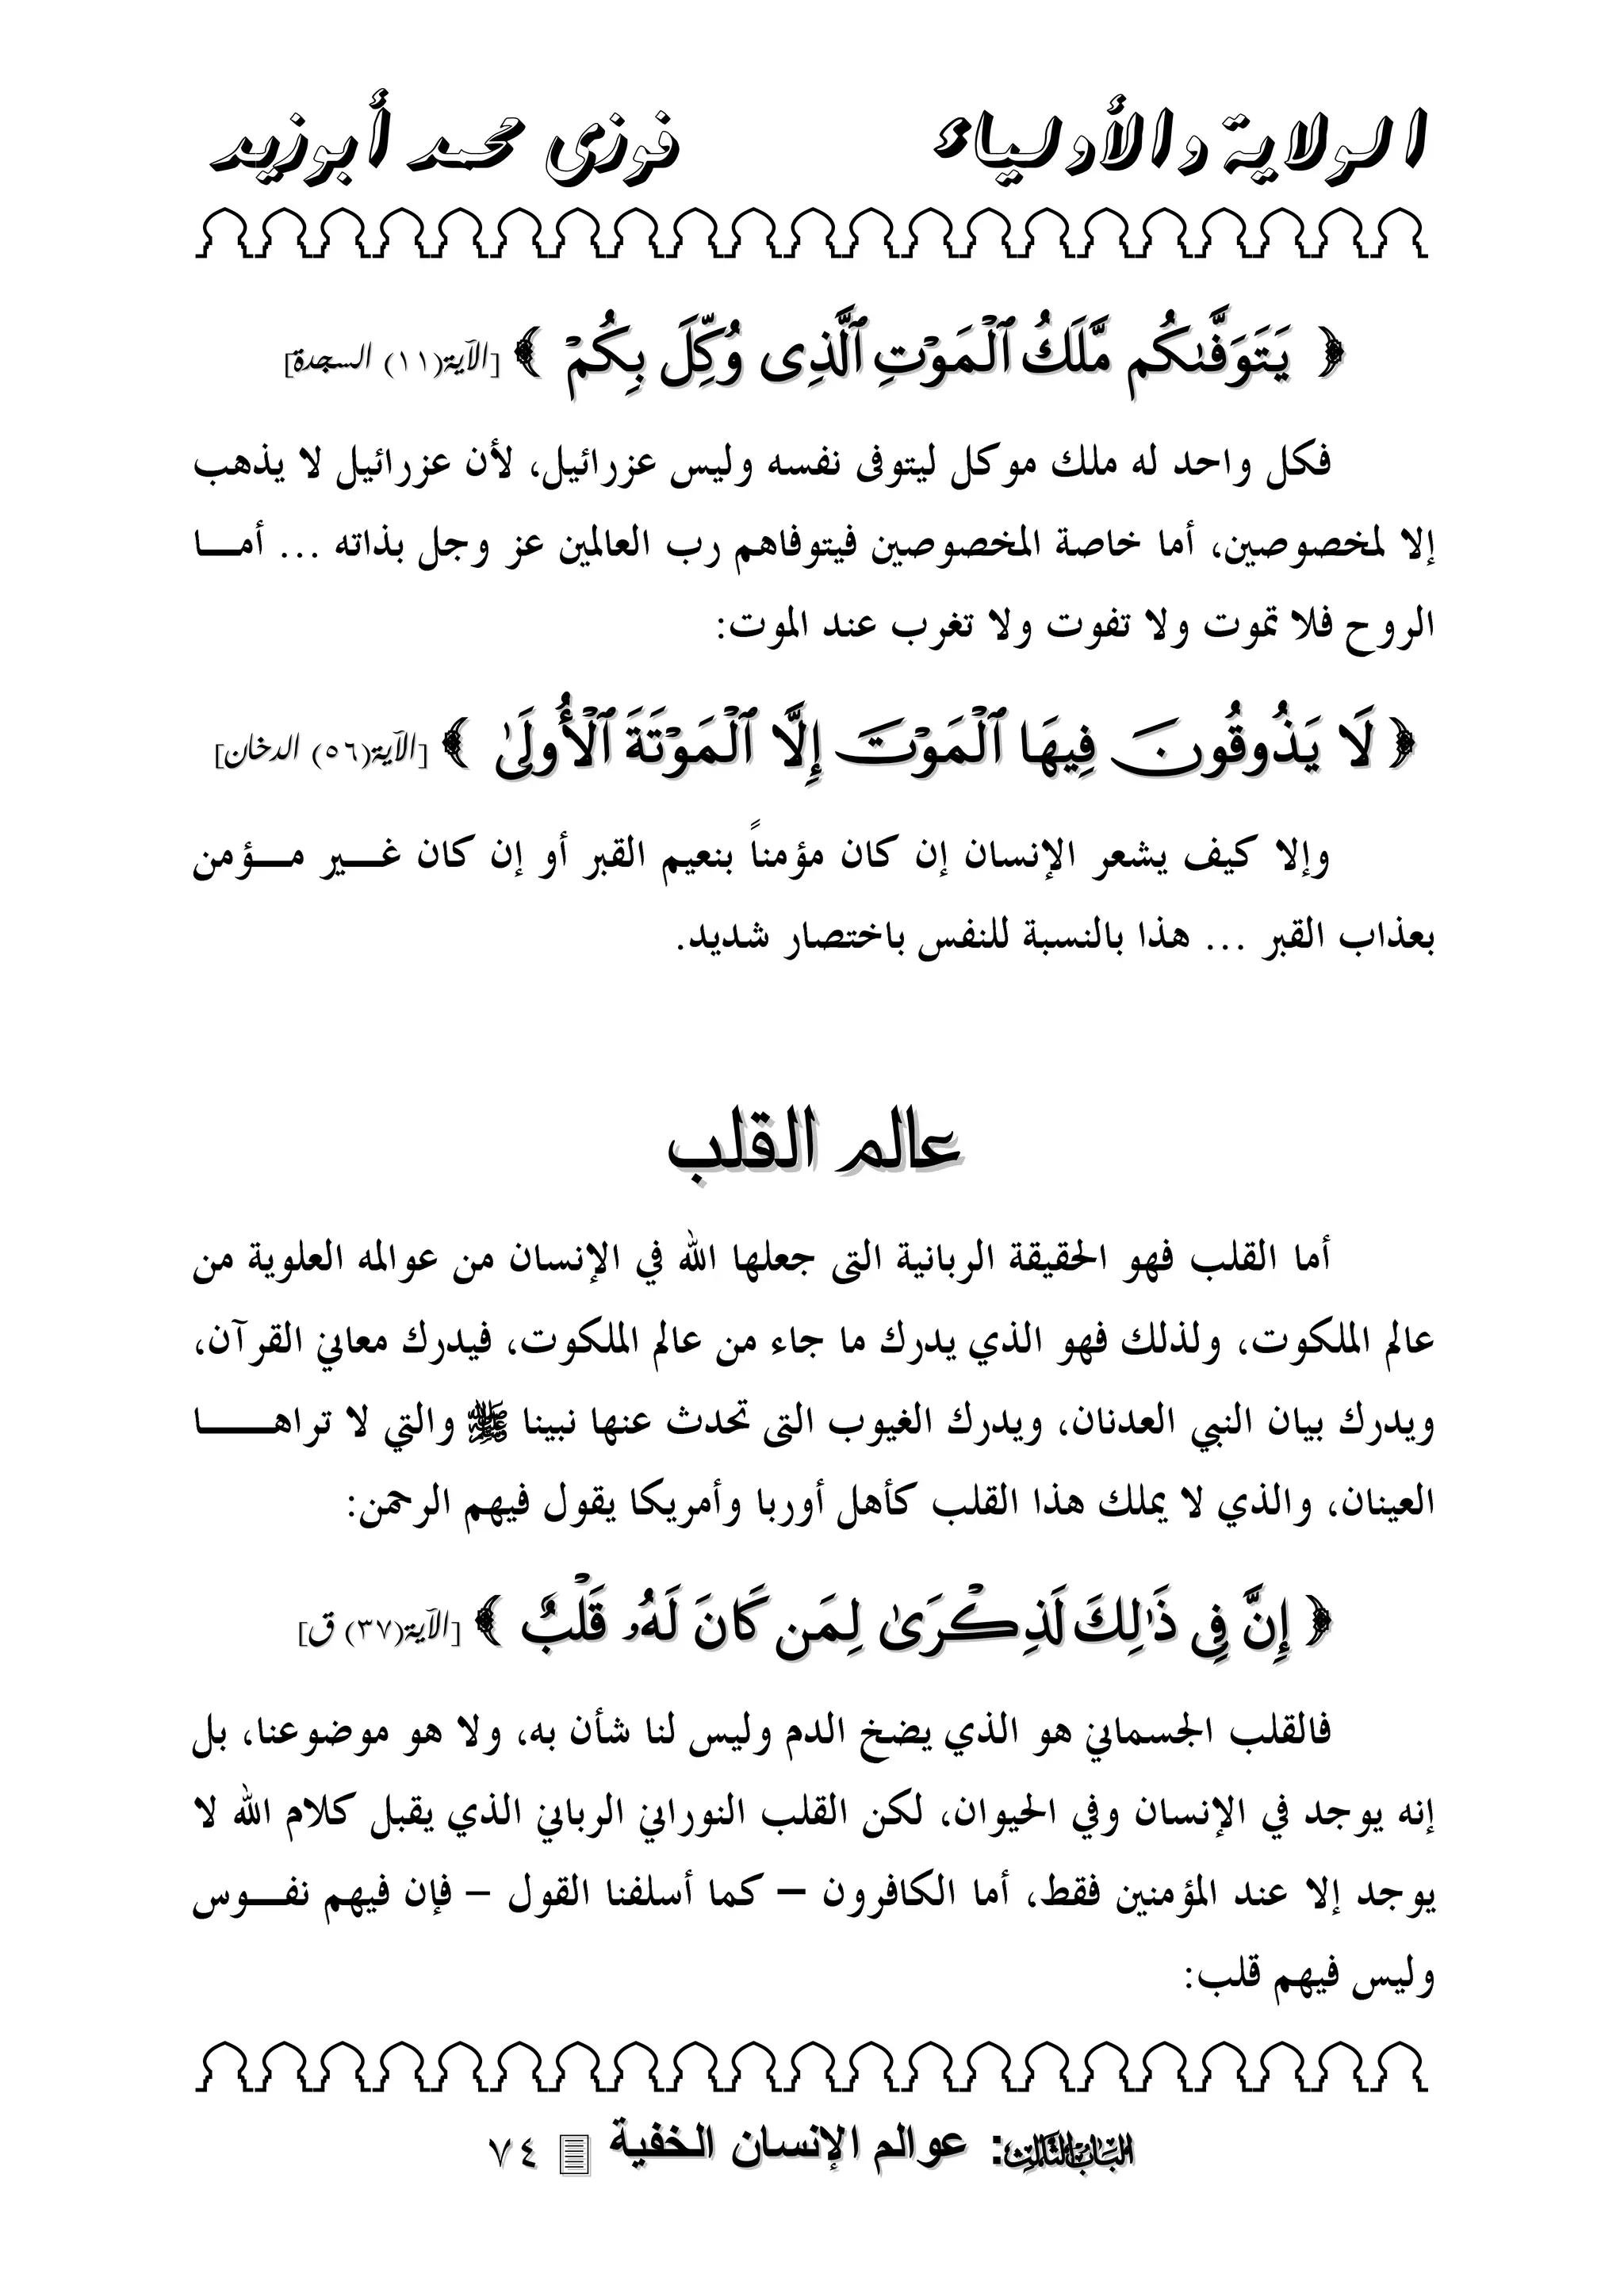 الولاية والأولياء فوزى محمد أبوزيد
﴿ يَتَوَفَّىٰكُم مَّلَكُ ٱلْمَوْتِ ٱلَّذِى وُكِّلَ بِكُمْ ﴾ [الآية(١١) السجدة]
فكل واحد له ملك موكل ليتوفى نفسه وليس عزرائيل، لأن عزرائيل لا يذهب
إلا لمخصوصين، أما خاصة المخصوصين فيتوفاهم رب العالمين عز وجل بذاته ... أمـــا
الروح فلا تموت ولا تفوت ولا تغرب عند الموت:
﴿ لَا يَذُوقُونَ فِيهَا ٱلْمَوْتَ إِلَّا ٱلْمَوْتَةَ ٱلْأُولَىٰ ﴾ [الآية(٥٦) الدخان]
وإلا كيف يشعر الإنسان إن كان مؤمناً بنعيم القبر أو إن كان غـــير مـــؤمن
بعذاب القبر ... هذا بالنسبة للنفس باختصار شديد.
عالم القلب
أما القلب فهو الحقيقة الربانية التى جعلها الله في الإنسان من عوالمه العلوية من
عالم الملكوت، ولذلك فهو الذي يدرك ما جاء من عالم الملكوت، فيدرك معاني القرآن،
ويدرك بيان النبي العدنان، ويدرك الغيوب التى تحدث عنها نبينا ﷺ والتي لا تراهــــــا
العينان، والذي لا يملك هذا القلب كأهل أوربا وأمريكا يقول فيهم الرحمن:
﴿ إِنَّ فِى ذَٰلِكَ لَذِكْرَىٰ لِمَن كَانَ لَهُۥ قَلْبٌ ﴾ [الآية(٣٧) ق]
فالقلب الجسماني هو الذي يضخ الدم وليس لنا شأن به، ولا هو موضوعنا، بل
إنه يوجد في الإنسان وفي الحيوان، لكن القلب النوراني الرباني الذي يقبل كلام الله لا
يوجد إلا عند المؤمنين فقط، أما الكافرون – كما أسلفنا القول – فإن فيهم نفـــوس
وليس فيهم قلب:
الباب الثالث: عوالم الإنسان الخفية ٧٤